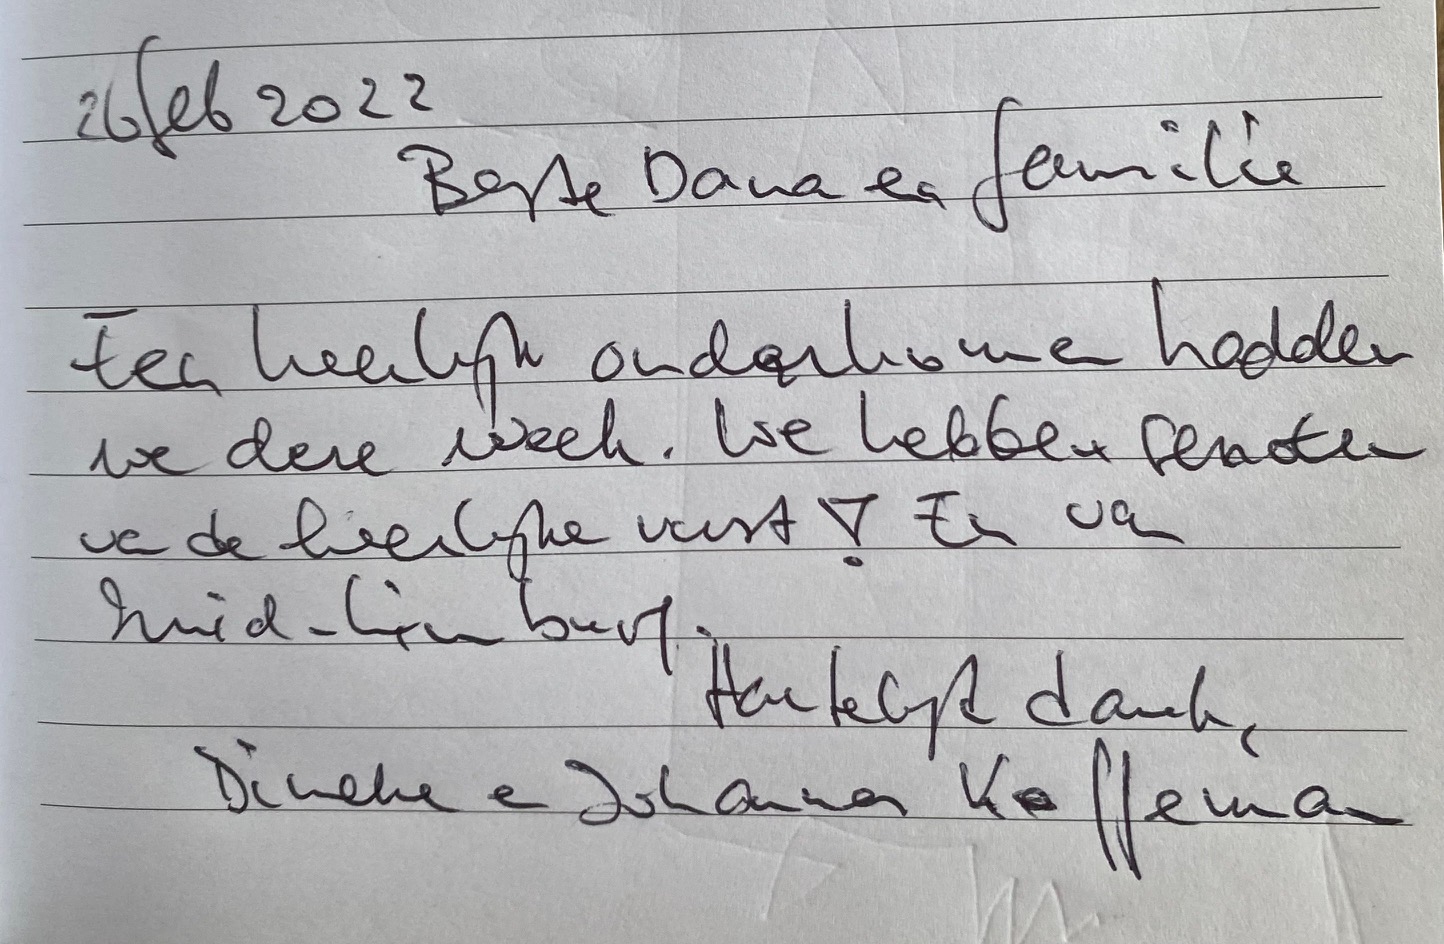 26 feb 2022
Beste Dana en familie
Een heerlijk onderkomen hadden
we deze week. We hebben genoten
van de heerlijke rust! En van
Zuid-Limburg.
Hartelijk dank,
Dineke en Johannes Koffeman